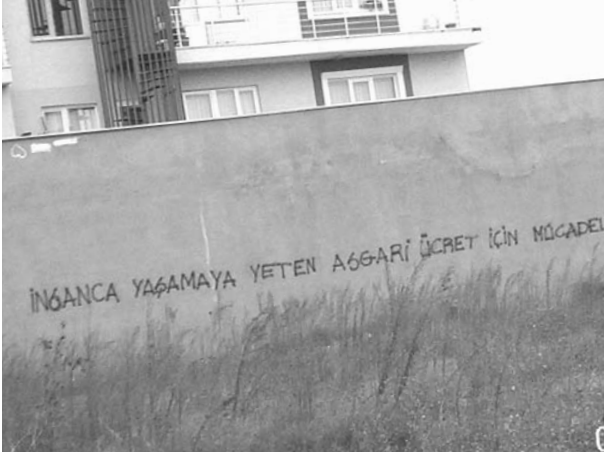 İNSANCA YAŞAMAYA YETEN ASGARİ ÜCRET İÇİN MÜCADEL